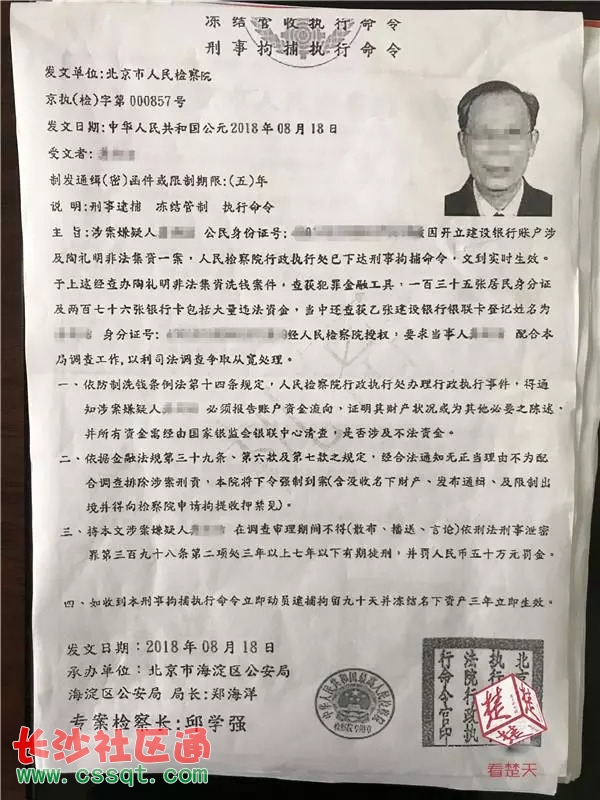 冻结管收执行命令
刑事拘捕执行命令
发文单位:北京市人民检察院
京执(检)字第 000857号
发文日期:中华人民共和国公元2018年08月18日
受文者:
制发通缉(密)函件或限制期限:(五)年
说 明:刑事逮捕 冻结管制 执行命令
主 旨:涉案嫌疑人 公民身份证号: 因开立建设银行账户涉
及陶礼明非法集资一案，人民检察院行政执行处已下达刑事拘捕命令，文到实时生效。
于上述经查办陶礼明非法集资洗钱案件，查获犯罪金融工具，一百三十五张居民身分证
及两百七十六张银行卡包括大量违法资金，当中还查获乙张建设银行银联卡登记姓名为
身分证号: 经人民检察院授权，要求当事人 配合本
局调查工作,以利司法调查争取从宽处理。
一、依防制洗钱条例法第十四条规定，人民检察院行政执行处办理行政执行事件，得通
知涉案嫌疑人 必须报告账户资金流向，证明其财产状况或为其他必要之陈述，
并所有资金需经由国家银监会银联中心清查，是否涉及不法资金。
二、依据金融法规第三十九条、第六款及第七款之规定，经合法通知无正当理由不为配
合调查排除涉案刑责，本院将下令强制到案(含没收名下财产、发布通缉、及限制出
境并得向检察院申请拘提收押禁见)。
三、将本文涉案嫌疑人 在调查审理期间不得(散布、播送、言论)依刑法刑事泄密
罪第三百九十八条第二项处三年以上七年以下有期徒刑，并罚人民币五十万元罚金。
四、如收到本刑事拘捕执行命令立即动员逮捕拘留九十天并冻结名下资产三年立即生效。
发文日期：2018年08月18日
承办单位：北京市海淀区公安局
海淀区公安局 局长:郑海洋
专案检察长:邱学强
中华人民共和国最高人民检察院
检察院专用章
北京
执行
法院行政执
行命令官印
楚楚
看楚天
长沙社区通
www.cssqt.com